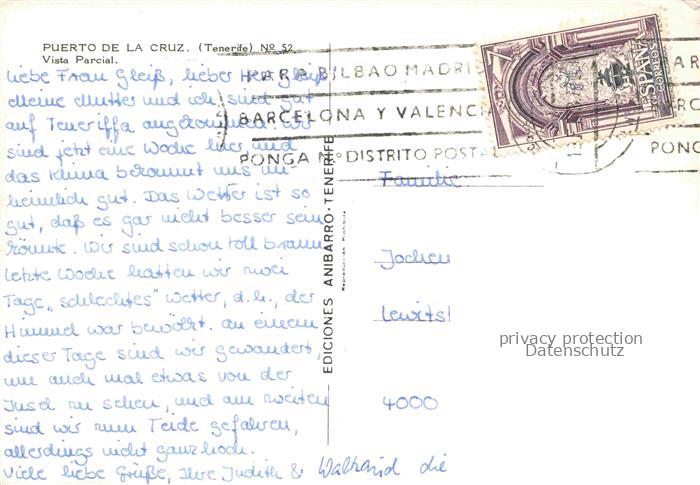 PUERTO DE LA CRUZ. (Tenerife) Nº 52
Vista Parcial.
Liebe Frau Gleiß, lieber Herr Gleiß
Meine Mutter und ich sind gut
auf Teneriffa angekommen. Wir
sind jetzt eine Woche hier und
das Klima bekommt uns un-
heimlich gut. Das Wetter ist so
gut, daß es gar nicht besser sein
könnte. Wir sind schon toll braun
letzte Woche hatten wir zwei
Tage „schlechtes" Wetter, d.h., der
Himmel war bewölkt. An einem
dieser Tage sind wir gewandert,
um auch mal etwas von der
Insel zu sehen, und am zweiten
sind wir zum Teide gefahren,
allerdings nicht ganz hoch.
Viele liebe Grüße, Ihre Judith &
PARA BILBAO MADRI
BARCELONA Y VALENCI
PONGA Nº DISTRITO POSTA
AR
BAR
PONG
ESPAÑA
CORREOS
EDICIONES ANIBARRO-TENERIFE
Reproducción Prohibida
Familie
Jochen
4000
privacy protection
Datenschutz